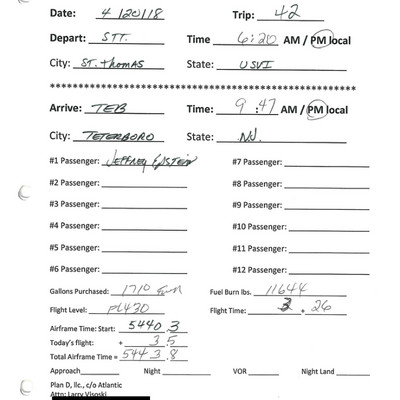 Date: 4/20/18 Trip: 42
Depart: STT. Time 6:20 AM / PM local
City: ST. Thomas State: USVI
********************************************************
Arrive: TEB Time: 9:47 AM / PM local
City: TETERBORO State: NJ.
#1 Passenger: JEFFREY EPSTEIN #7 Passenger:
#2 Passenger: #8 Passenger:
#3 Passenger: #9 Passenger:
#4 Passenger: #10 Passenger:
#5 Passenger: #11 Passenger:
#6 Passenger: #12 Passenger:
Gallons Purchased: 1710 Fuel Burn lbs. 11644
Flight Level: FL430 Flight Time: 3 + 26
Airframe Time: Start: 5440.3
Today's flight: + 3.5
Total Airframe Time = 5443.8
Approach Night VOR Night Land
Plan D, llc., c/o Atlantic
Attn: Larry Visoski